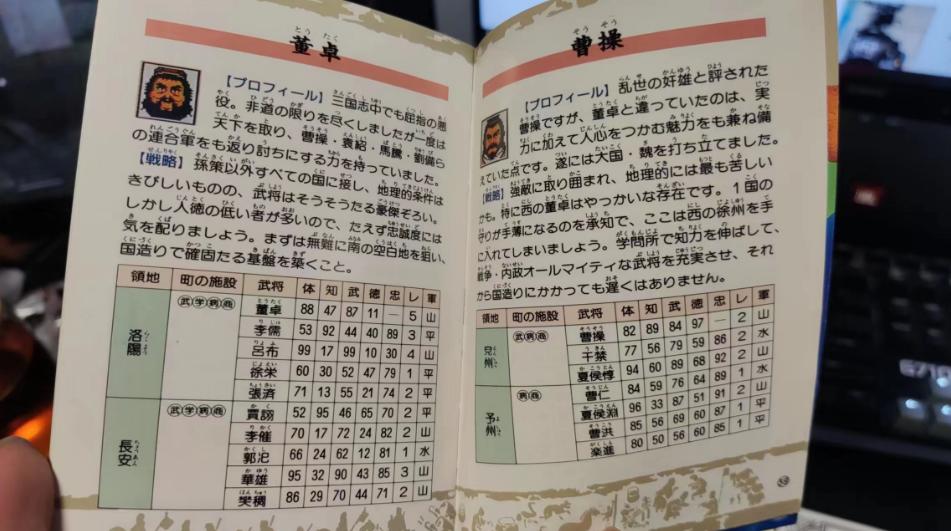 董卓
【プロフィール】三国志中でも屈指の悪
役。非道の限りを尽くしましたが一度は
天下を取り、曹操・袁紹・馬騰・劉備ら
の連合軍をも返り討ちにする力を持っていました。
【戦略】孫策以外すべての国に接し、地理的条件は
きびしいものの、武将はそうそうたる豪傑ぞろい。
しかし人徳の低い者が多いので、たえず忠誠度には
気を配りましょう。まずは無難に南の空白地を狙い、
国造りで確固たる基盤を築くこと。
領地 町の施設 武将 体 知 武 徳 忠 レ 軍
洛陽 武学病商 董卓 88 47 87 11 — 5 山
李儒 53 92 44 40 89 3 平
呂布 99 17 99 10 30 4 山
徐栄 60 30 52 47 79 1 平
張済 71 13 55 21 74 2 平
長安 武学病商 賈詡 52 95 46 65 70 2 平
李傕 70 17 72 24 82 2 山
郭汜 66 24 62 12 81 1 水
華雄 95 32 90 43 85 3 山
樊稠 86 29 70 44 71 2 山
曹操
【プロフィール】乱世の奸雄と評された
曹操ですが、董卓と違っていたのは、実
力に加えて人心をつかむ魅力をも兼ね備
えていた点です。遂には大国・魏を打ち立てました。
【戦略】強敵に取り囲まれ、地理的には最も苦しい
かも。特に西の董卓はやっかいな存在です。1国の
守りが手薄になるのを承知で、ここは西の徐州を手
に入れてしまいましょう。学問所で知力を伸ばして、
戦争・内政オールマイティな武将を充実させ、それ
から国造りにかかっても遅くはありません。
領地 町の施設 武将 体 知 武 徳 忠 レ 軍
兗州 武病商 曹操 82 89 84 97 — 2 山
于禁 77 56 79 59 86 2 水
夏侯惇 94 60 89 68 92 2 山
予州 病商 曹仁 84 59 76 64 89 1 水
夏侯淵 96 33 87 51 91 2 山
曹洪 85 56 69 60 87 1 平
楽進 80 50 56 60 85 1 平